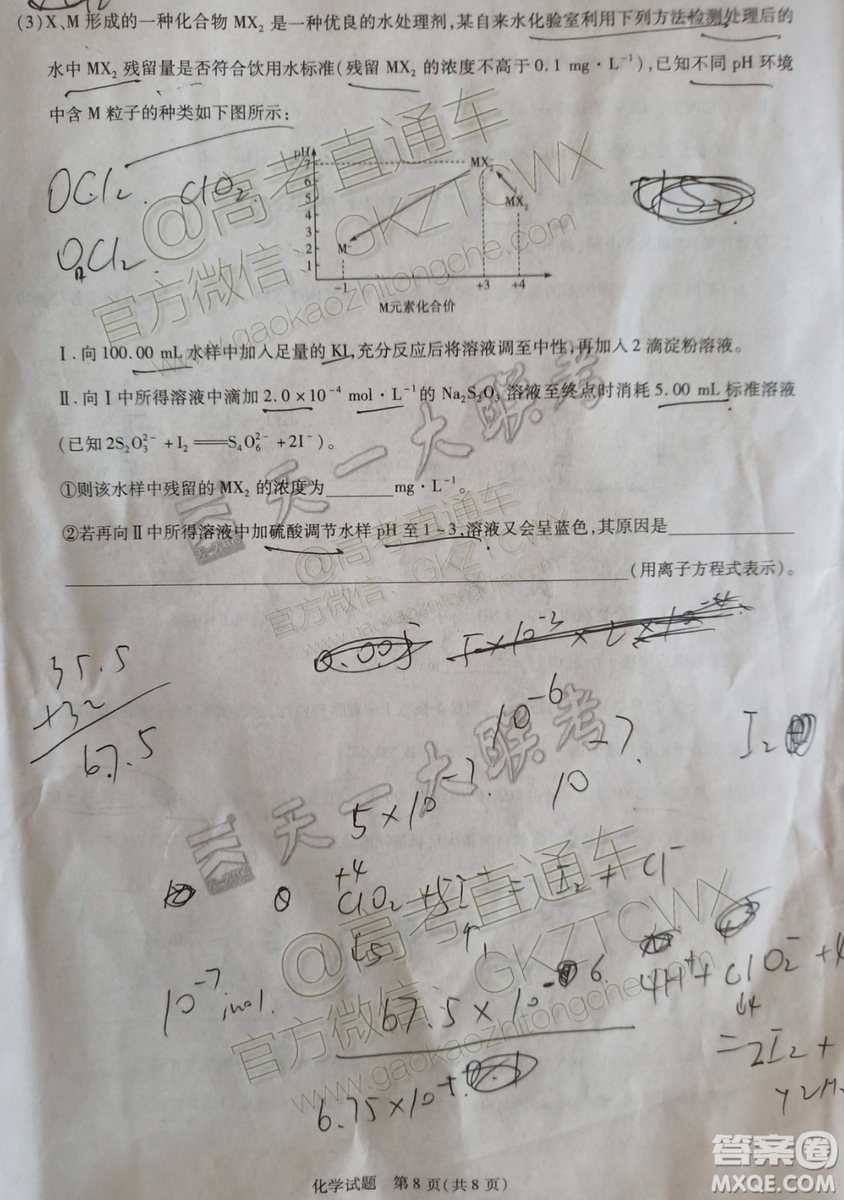 (3)X、M 形成的一种化合物 MX₂ 是一种优良的水处理剂,某自来水化验室利用下列方法检测处理后的
水中 MX₂ 残留量是否符合饮用水标准(残留 MX₂ 的浓度不高于 0.1 mg·L⁻¹),已知不同 pH 环境
中含 M 粒子的种类如下图所示:
OCl₂. ClO₂
O₂Cl₂
pH
7
6
5
4
3
2
1
MX₂⁻
MX₂
M⁻
-1
+3
+4
M元素化合价
Ⅰ.向 100.00 mL 水样中加入足量的 KI,充分反应后将溶液调至中性,再加入 2 滴淀粉溶液。
Ⅱ.向Ⅰ中所得溶液中滴加 2.0×10⁻⁴ mol·L⁻¹的 Na₂S₂O₃ 溶液至终点时消耗 5.00 mL 标准溶液
(已知 2S₂O₃²⁻+I₂══S₄O₆²⁻+2I⁻)。
①则该水样中残留的 MX₂ 的浓度为______mg·L⁻¹。
②若再向Ⅱ中所得溶液中加硫酸调节水样 pH 至 1~3,溶液又会呈蓝色,其原因是
(用离子方程式表示)。
0.005
35.5
+32
67.5
10⁻⁶
5×10⁻⁷
10⁻⁷
I₂
+4
ClO₂
I₂ + Cl⁻
10⁻⁷ mol.
67.5×10⁻⁶
4H⁺+ClO₂⁻+4
=2I₂+
6.75×10
化学试题 第 8 页(共 8 页)
@高考直通车
官方微信：GKZTCWX
www.gaokaozhitongche.com
天一大联考
@高考直通车
官方微信：GKZTCWX
www.gaokaozhitongche.com
天一大联考
@高考直通车
官方微信：GKZTCWX
www.gaokaozhitongche.com
答案圈
MXQE.COM